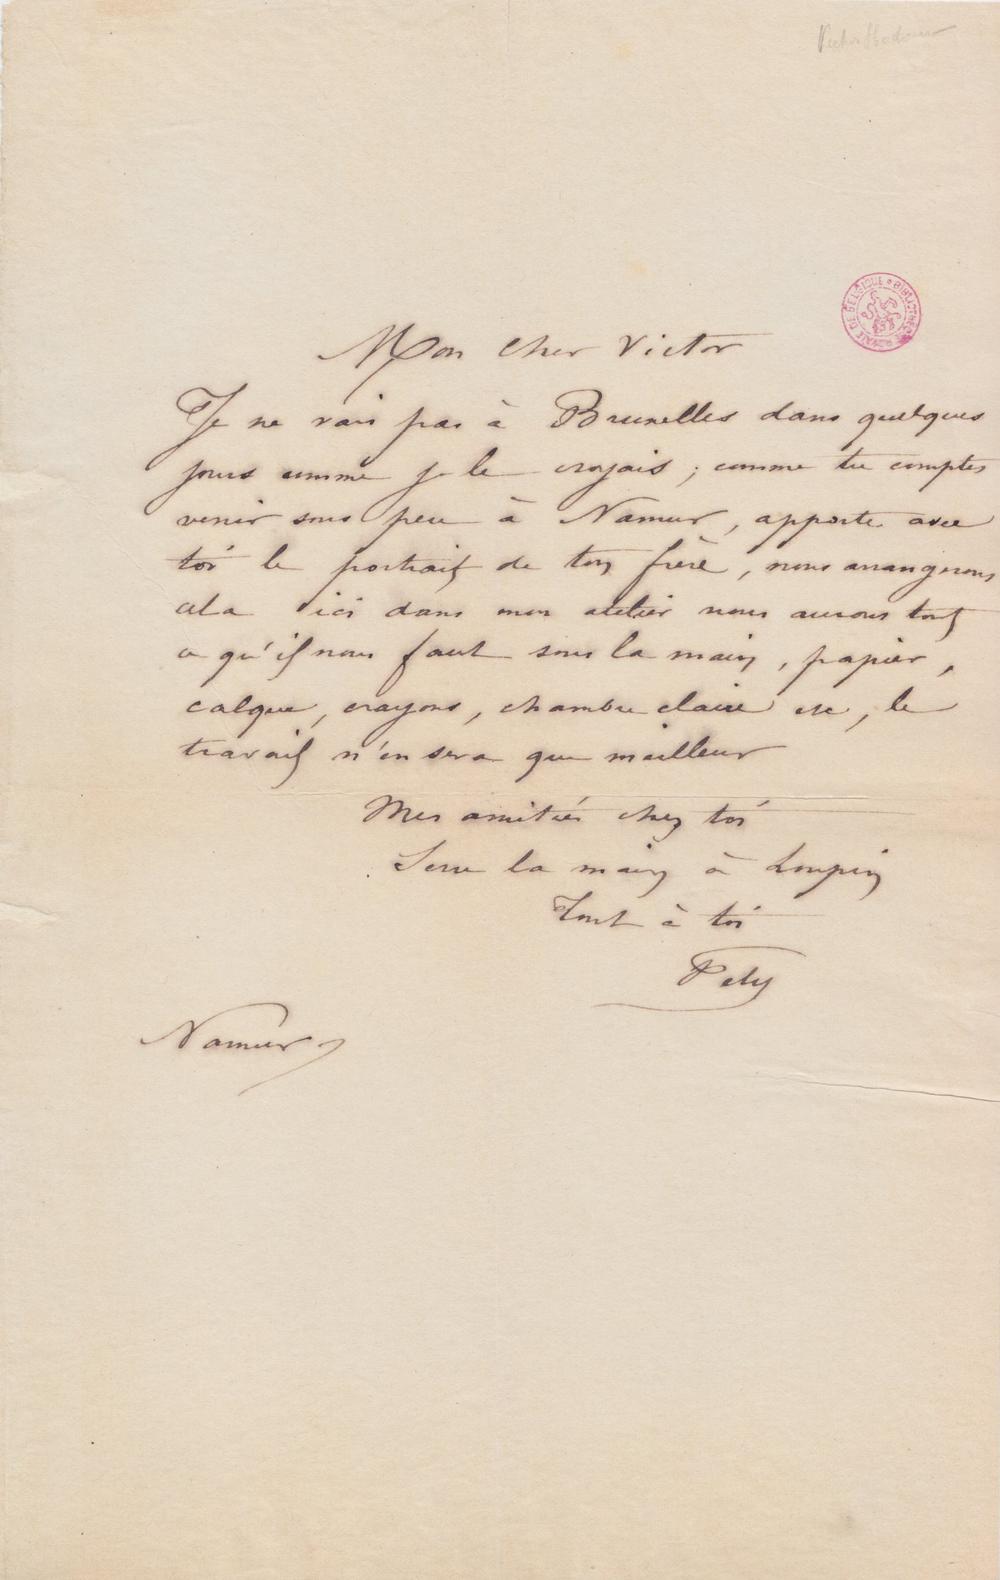 Mon cher Victor
Je ne vais pas à Bruxelles dans quelques
jours comme je le croyais ; comme tu comptes
venir sous peu à Namur, apporte avec
toi le portrait de ton frère, nous arrangerons
cela ici dans mon atelier nous aurons tout
ce qu'il nous faut sous la main, papier,
calque, crayons, chambre claire etc, le
travail n'en sera que meilleur
Mes amitiés chez toi
Serre la main à
Tout à toi
Namur
BIBLIOTHÈQUE ROYALE DE BELGIQUE